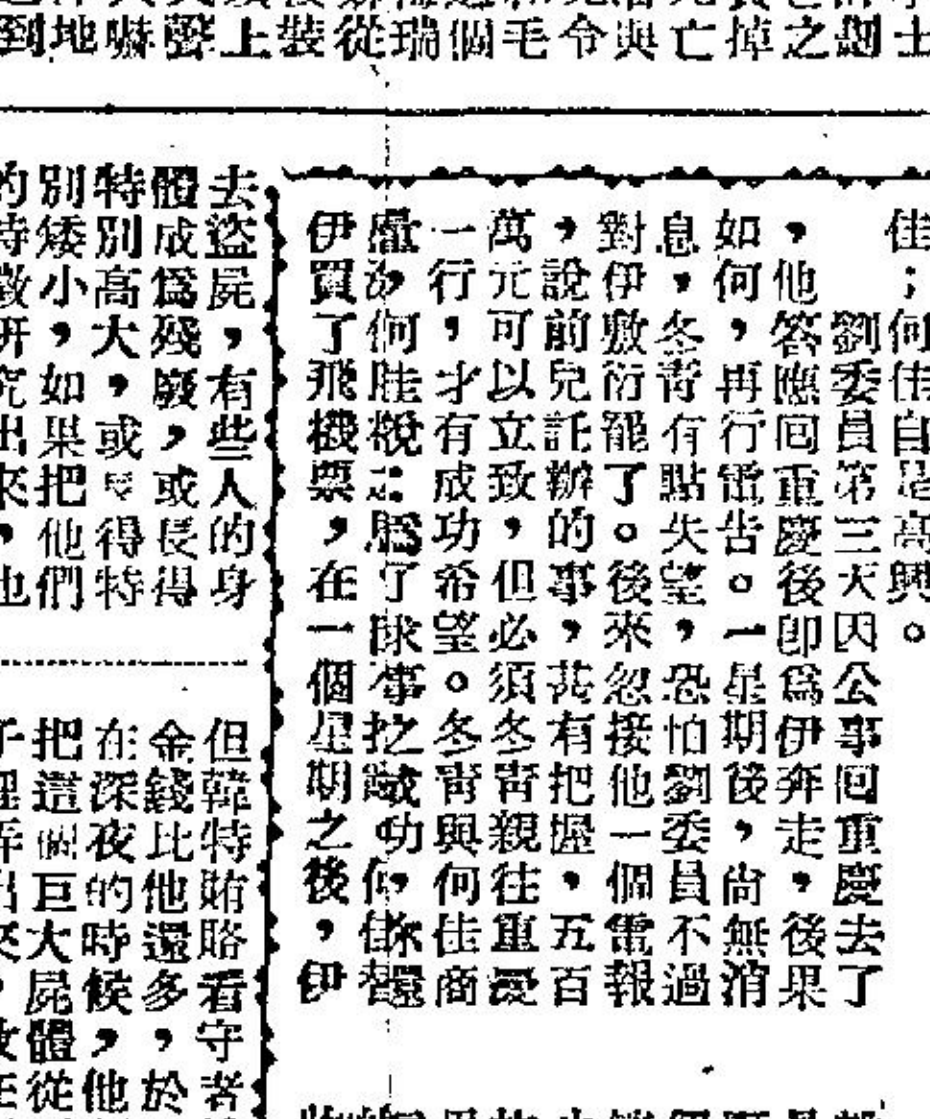 士
劃
之
掉
亡
與
令
毛
個
瑞
從
裝
上
聲
嚇
地
到
佳；何佳自是高興。
劉委員第三天因公事回重慶去了
，他答應回重慶後即爲伊奔走，後果
如何，再行電告。一星期後，尚無消
息，冬青有點失望，恐怕劉委員不過
對伊敷衍罷了。後來，忽接他一個電報
，說前兒託辦的事，甚有把握，五百
萬元可以立致，但必須冬青親往重慶
一行，才有成功希望。冬青與何佳商
伊買了飛機票，在一個星期之後，伊
去盜屍，有些人的身
體成爲殘廢，或長得
特別高大，或得特
別矮小，如果把他們
的特徵研究出來，也
但韓特賄賂看守者
金錢比他還多，於
在深夜的時候，他
把這個巨大屍體從